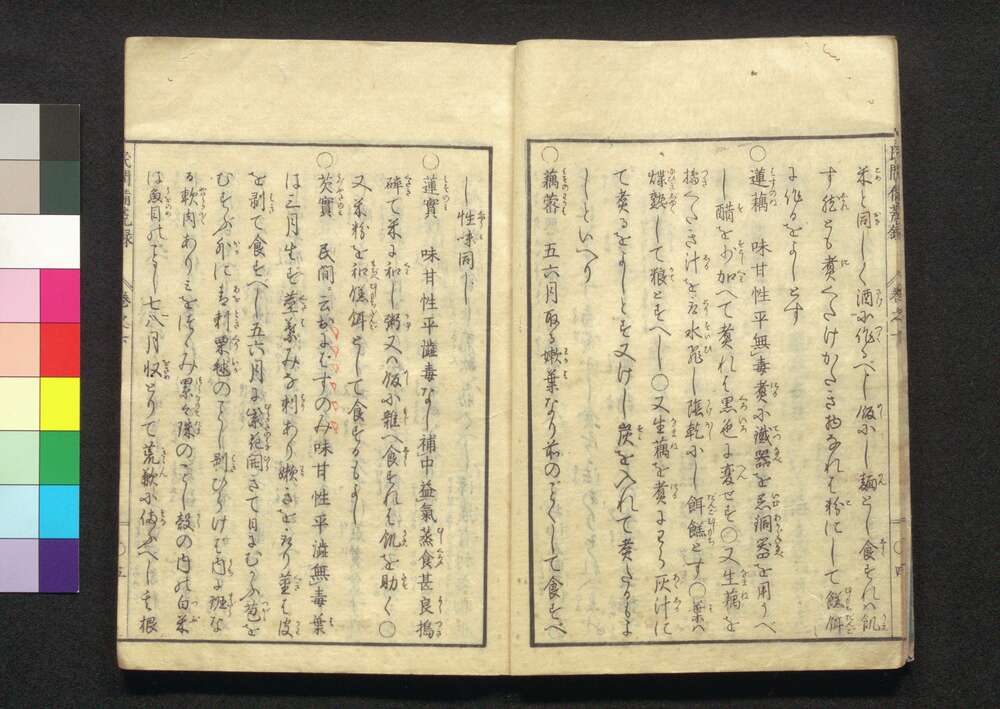 米と同しく酒に作るべし飯にし麺とし食すれハ飢
す然とも煮くだけかたき物なれも粉にして餻餌
に作るをよしとす
○蓮藕 味甘性平無毒煮に鐵器を忌銅器を用うべ
し醋を少加へて煮れは黒色に変せす○又生藕を
搗くたき汁を去水飛し陰乾にし餌餻とす○葉ハ
煠熟して粮とすへし○又生藕を煮にわら灰汁に
て煮るをよしとす又けし炭を入れて煮たるもよ
しといへり
○藕蓉 五六月取る嫩葉なり前のことくして食すべ
し性味同し
○蓮實 味甘性平濇毒なし補中益氣蒸食甚良搗
碎て米に和し粥又ハ飯に雜へ食すれは飢を助く○
又米粉を和餻餌として食するもよし
○芡實 民間云おにばすのみ味甘性平濇無毒葉
は三月生す莖葉みな刺あり嫩きを取り莖は皮
を剥て食すべし五六月に紫花開きて日にむかふ苞を
むすぶ外に青刺栗毬のことし剥ひらけは内に斑な
る軟肉ありミをつゝみ累々珠のことし殻の内の白米
は魚目のことし七八月収とりて荒歉に備ふべし其根
民間備荒録
巻之下
○四
民間備荒録
巻之下
○五